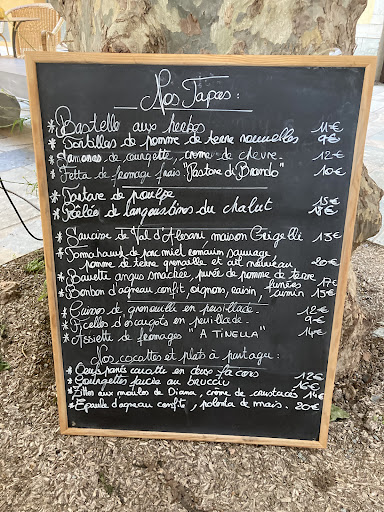 Nos Tapas :
* Bastelle aux herbes 11€
* Tortilles de pomme de terre nouvelles 9€
* de courgette, crème de chèvre 12€
* Fetta de fromage frais "Pastore di Brando" 10€
* Tartare de poulpe 15€
* Poêlée de langoustines du chalut
* Saucisse de Val d'Alesani maison 13€
* Tomahawk de porc miel romarin sauvage
pomme de terre grenaille et ail nouveau 20€
* Bavette angus smockée, purée de pomme de terre fumées 17€
* Bonbon d'agneau confit, oignons, raisin, cumin 13€
* Cuisses de grenouille en persillade 12€
* Ficelles d'escargots en persillade 9€
* Assiette de fromages "A TINELLA" 14€
Nos cocottes et plats à partager :
* Oeufs panés en deux façons 12€
* Courgettes farcie au brucciu 16€
* Zitos aux moules de Diana, crème de crustacés 14€
* Épaule d'agneau confite, polenta de maïs. 20€